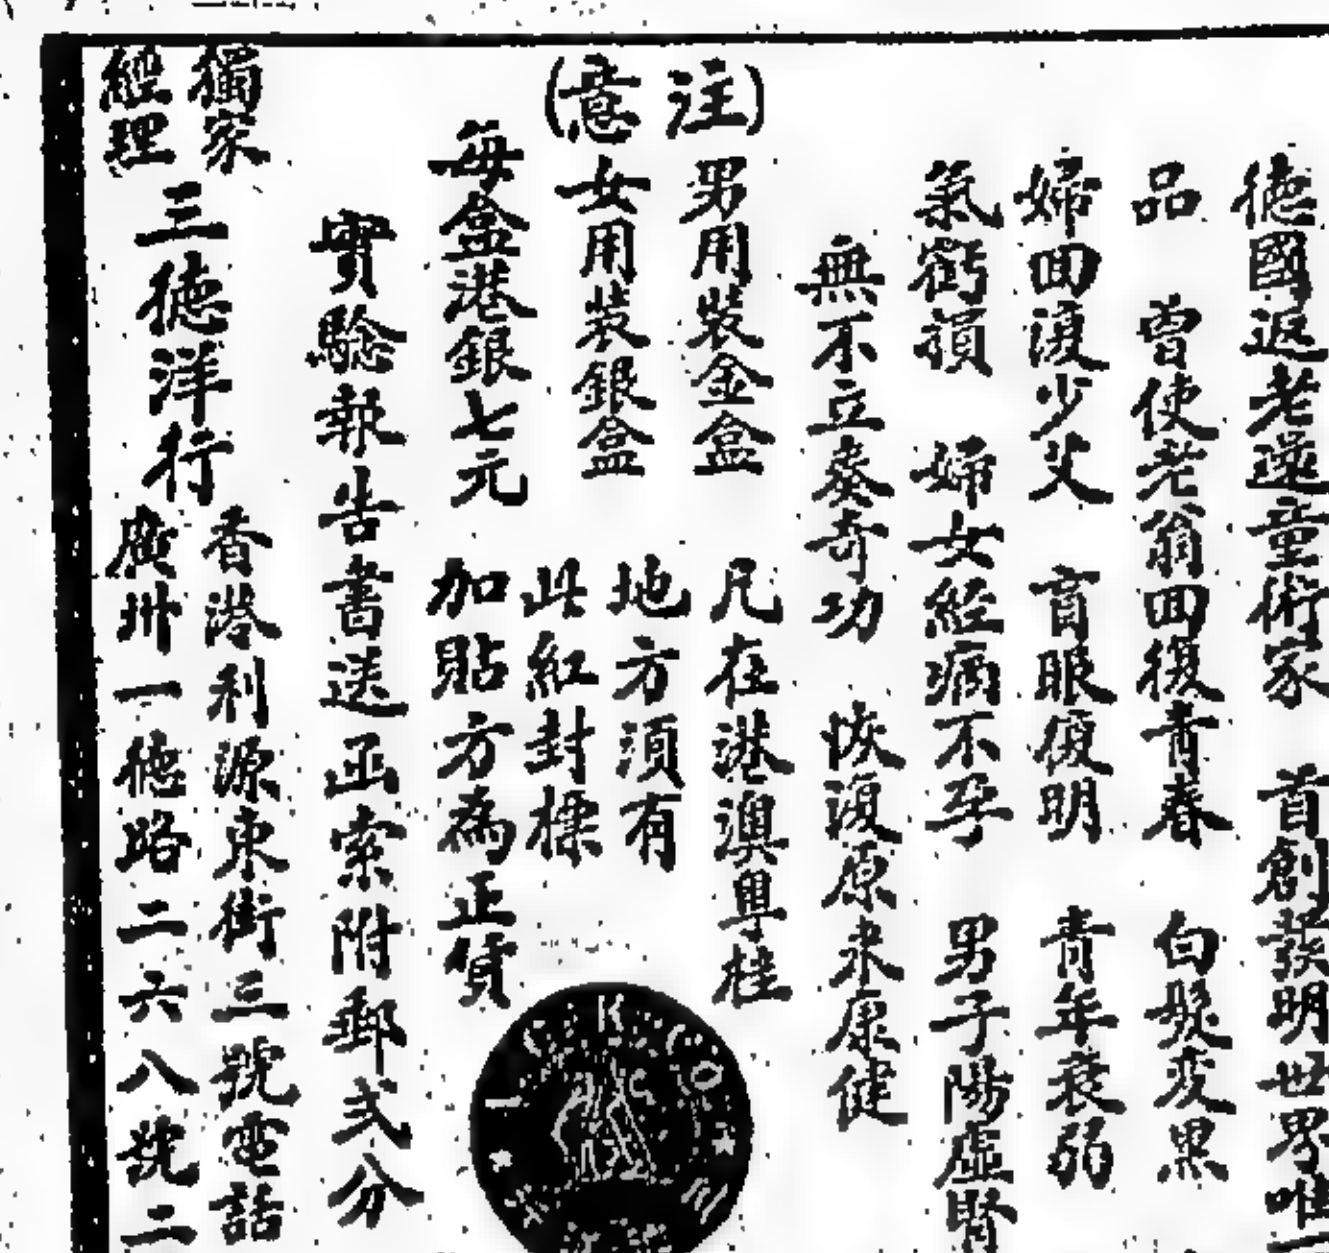 德國返老還童術家　首創發明世界唯一
品　曾使老翁回復青春　白髮变黑
婦回復少艾　盲眼復明　青年衰弱
氣虧損　婦女經痛不孕　男子陽虛腎
無不立奏奇功　恢復原来康健
(注意)
男用裝金盒
女用裝銀盒
每盒港銀七元
凡在港澳粤桂
地方須有
此紅封標
加貼方為正貨
實驗報告書送函索附郵弍分
獨家經理
三德洋行
香港利源東街三號電話
廣州一德路二六八號二